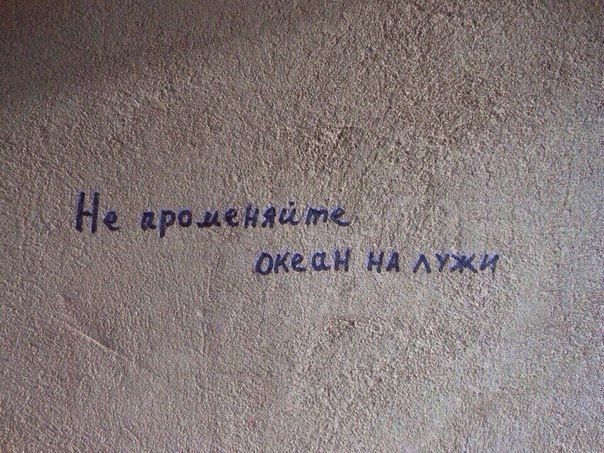 Не променяйте
океан на лужи